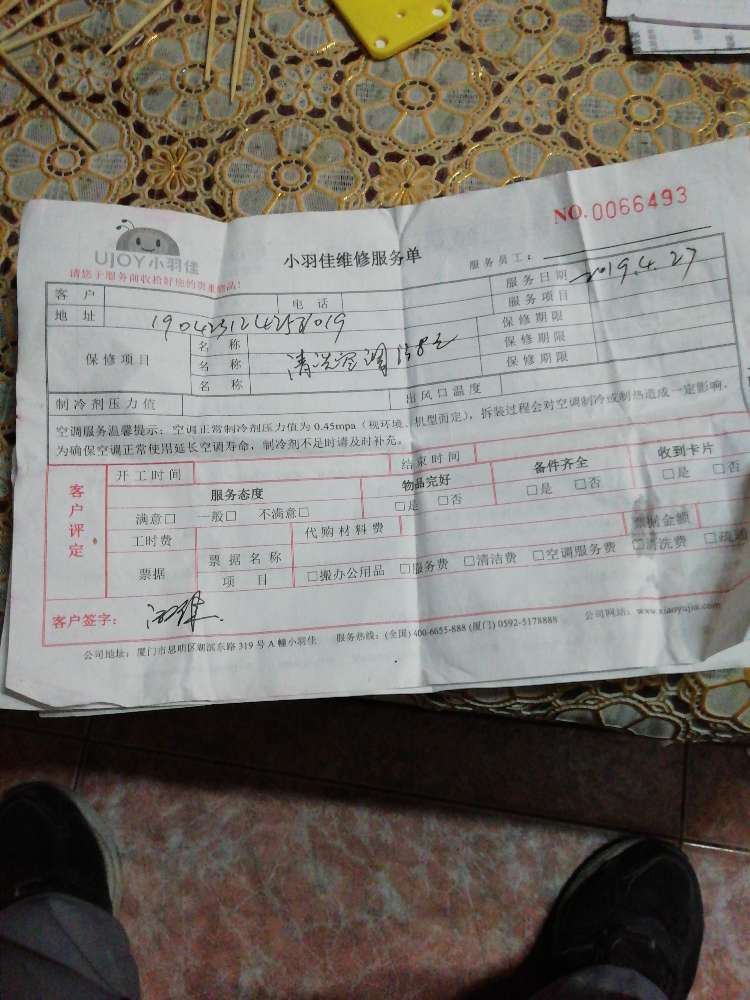 NO.0066493
UJOY小羽佳
小羽佳维修服务单
服务员工：
请您于服务前收拾好您的贵重物品！
服务日期 2019.4.27
客 户 电 话 服务项目
地 址 190423124258019 保修期限
保修项目 名 称 清洗空调 保修期限
名 称 保修期限
名 称
制冷剂压力值 出风口温度
空调服务温馨提示：空调正常制冷剂压力值为 0.45mpa（视环境、机型而定），拆装过程会对空调制冷或制热造成一定影响，
为确保空调正常使用延长空调寿命，制冷剂不足时请及时补充。
客户评定
开工时间 结束时间
服务态度 物品完好 备件齐全 收到卡片
满意□ 一般□ 不满意□ □是 □否 □是 □否 □是 □否
工时费 代购材料费
票据 票据名称 票据金额
项 目 □搬办公用品 □服务费 □清洁费 □空调服务费 □清洗费 □疏通
客户签字：
公司地址：厦门市思明区湖滨东路 319 号 A 幢小羽佳 服务热线：(全国) 400-6655-888 (厦门) 0592-5178888 公司网站：www.xiaoyujia.com